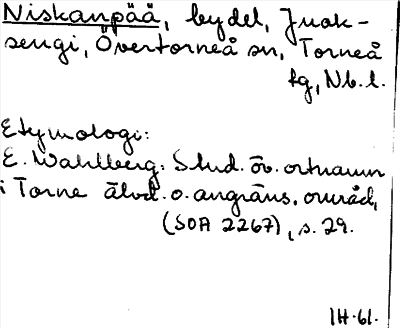 Niskanpää, bydel, Juok-
sengi, Övertorneå sn, Torneå
fg, Nb. l.
Etymologi:
E. Wahlberg: Stud. öv. ortnamn
i Torne älvd. o. angräns. områd,
(SOA 2267), s. 29.
IH-61.